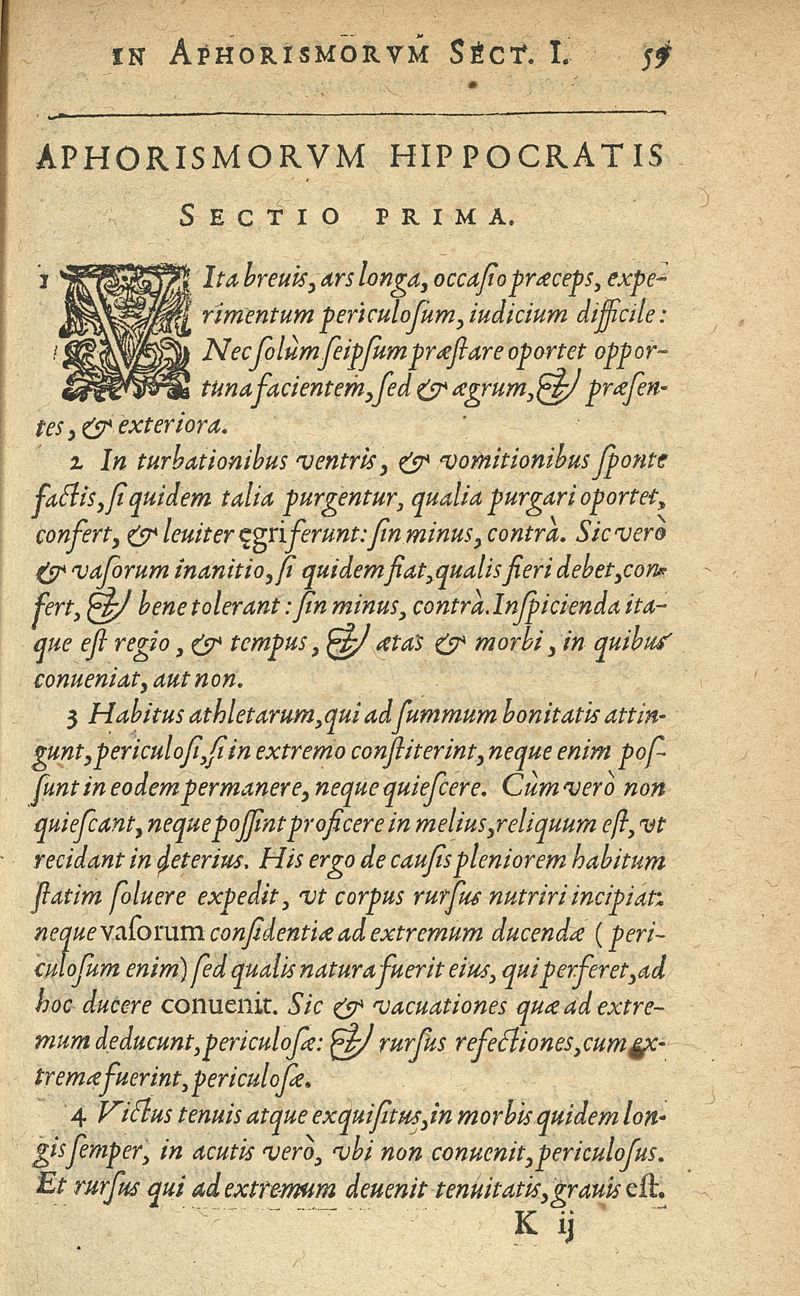 IN APHORISMORVM SECT. I. 59
APHORISMORVM HIPPOCRATIS
SECTIO PRIMA.
1 VIta breuis, ars longa, occaſio præceps, expe-
rimentum periculoſum, iudicium difficile:
Nec ſolùm ſeipſum præſtare oportet oppor-
tuna facientem, ſed & ægrum, & præſen-
tes, & exteriora.
2 In turbationibus ventris, & vomitionibus ſponte
factis, ſi quidem talia purgentur, qualia purgari oportet,
confert, & leuiter ęgri ferunt: ſin minus, contrà. Sic verò
& vaſorum inanitio, ſi quidem fiat, qualis fieri debet, con-
fert, & bene tolerant: ſin minus, contrà. Inſpicienda ita-
que eſt regio, & tempus, & ætas & morbi, in quibus
conueniat, aut non.
3 Habitus athletarum, qui ad ſummum bonitatis attin-
gunt, periculoſi, ſi in extremo conſtiterint, neque enim poſ-
ſunt in eodem permanere, neque quieſcere. Cùm verò non
quieſcant, neque poſſint proficere in melius, reliquum eſt, vt
recidant in deterius. His ergo de cauſis pleniorem habitum
ſtatim ſoluere expedit, vt corpus rurſus nutriri incipiat:
neque vaſorum conſidentiæ ad extremum ducendæ (peri-
culoſum enim) ſed qualis natura fuerit eius, qui perferet, ad
hoc ducere conuenit. Sic & vacuationes quæ ad extre-
mum deducunt, periculoſæ: & rurſus refectiones, cum ex-
tremæ fuerint, periculoſæ.
4 Victus tenuis atque exquiſitus, in morbis quidem lon-
gis ſemper, in acutis verò, vbi non conuenit, periculoſus.
Et rurſus qui ad extremum deuenit tenuitatis, grauis eſt.
K ij